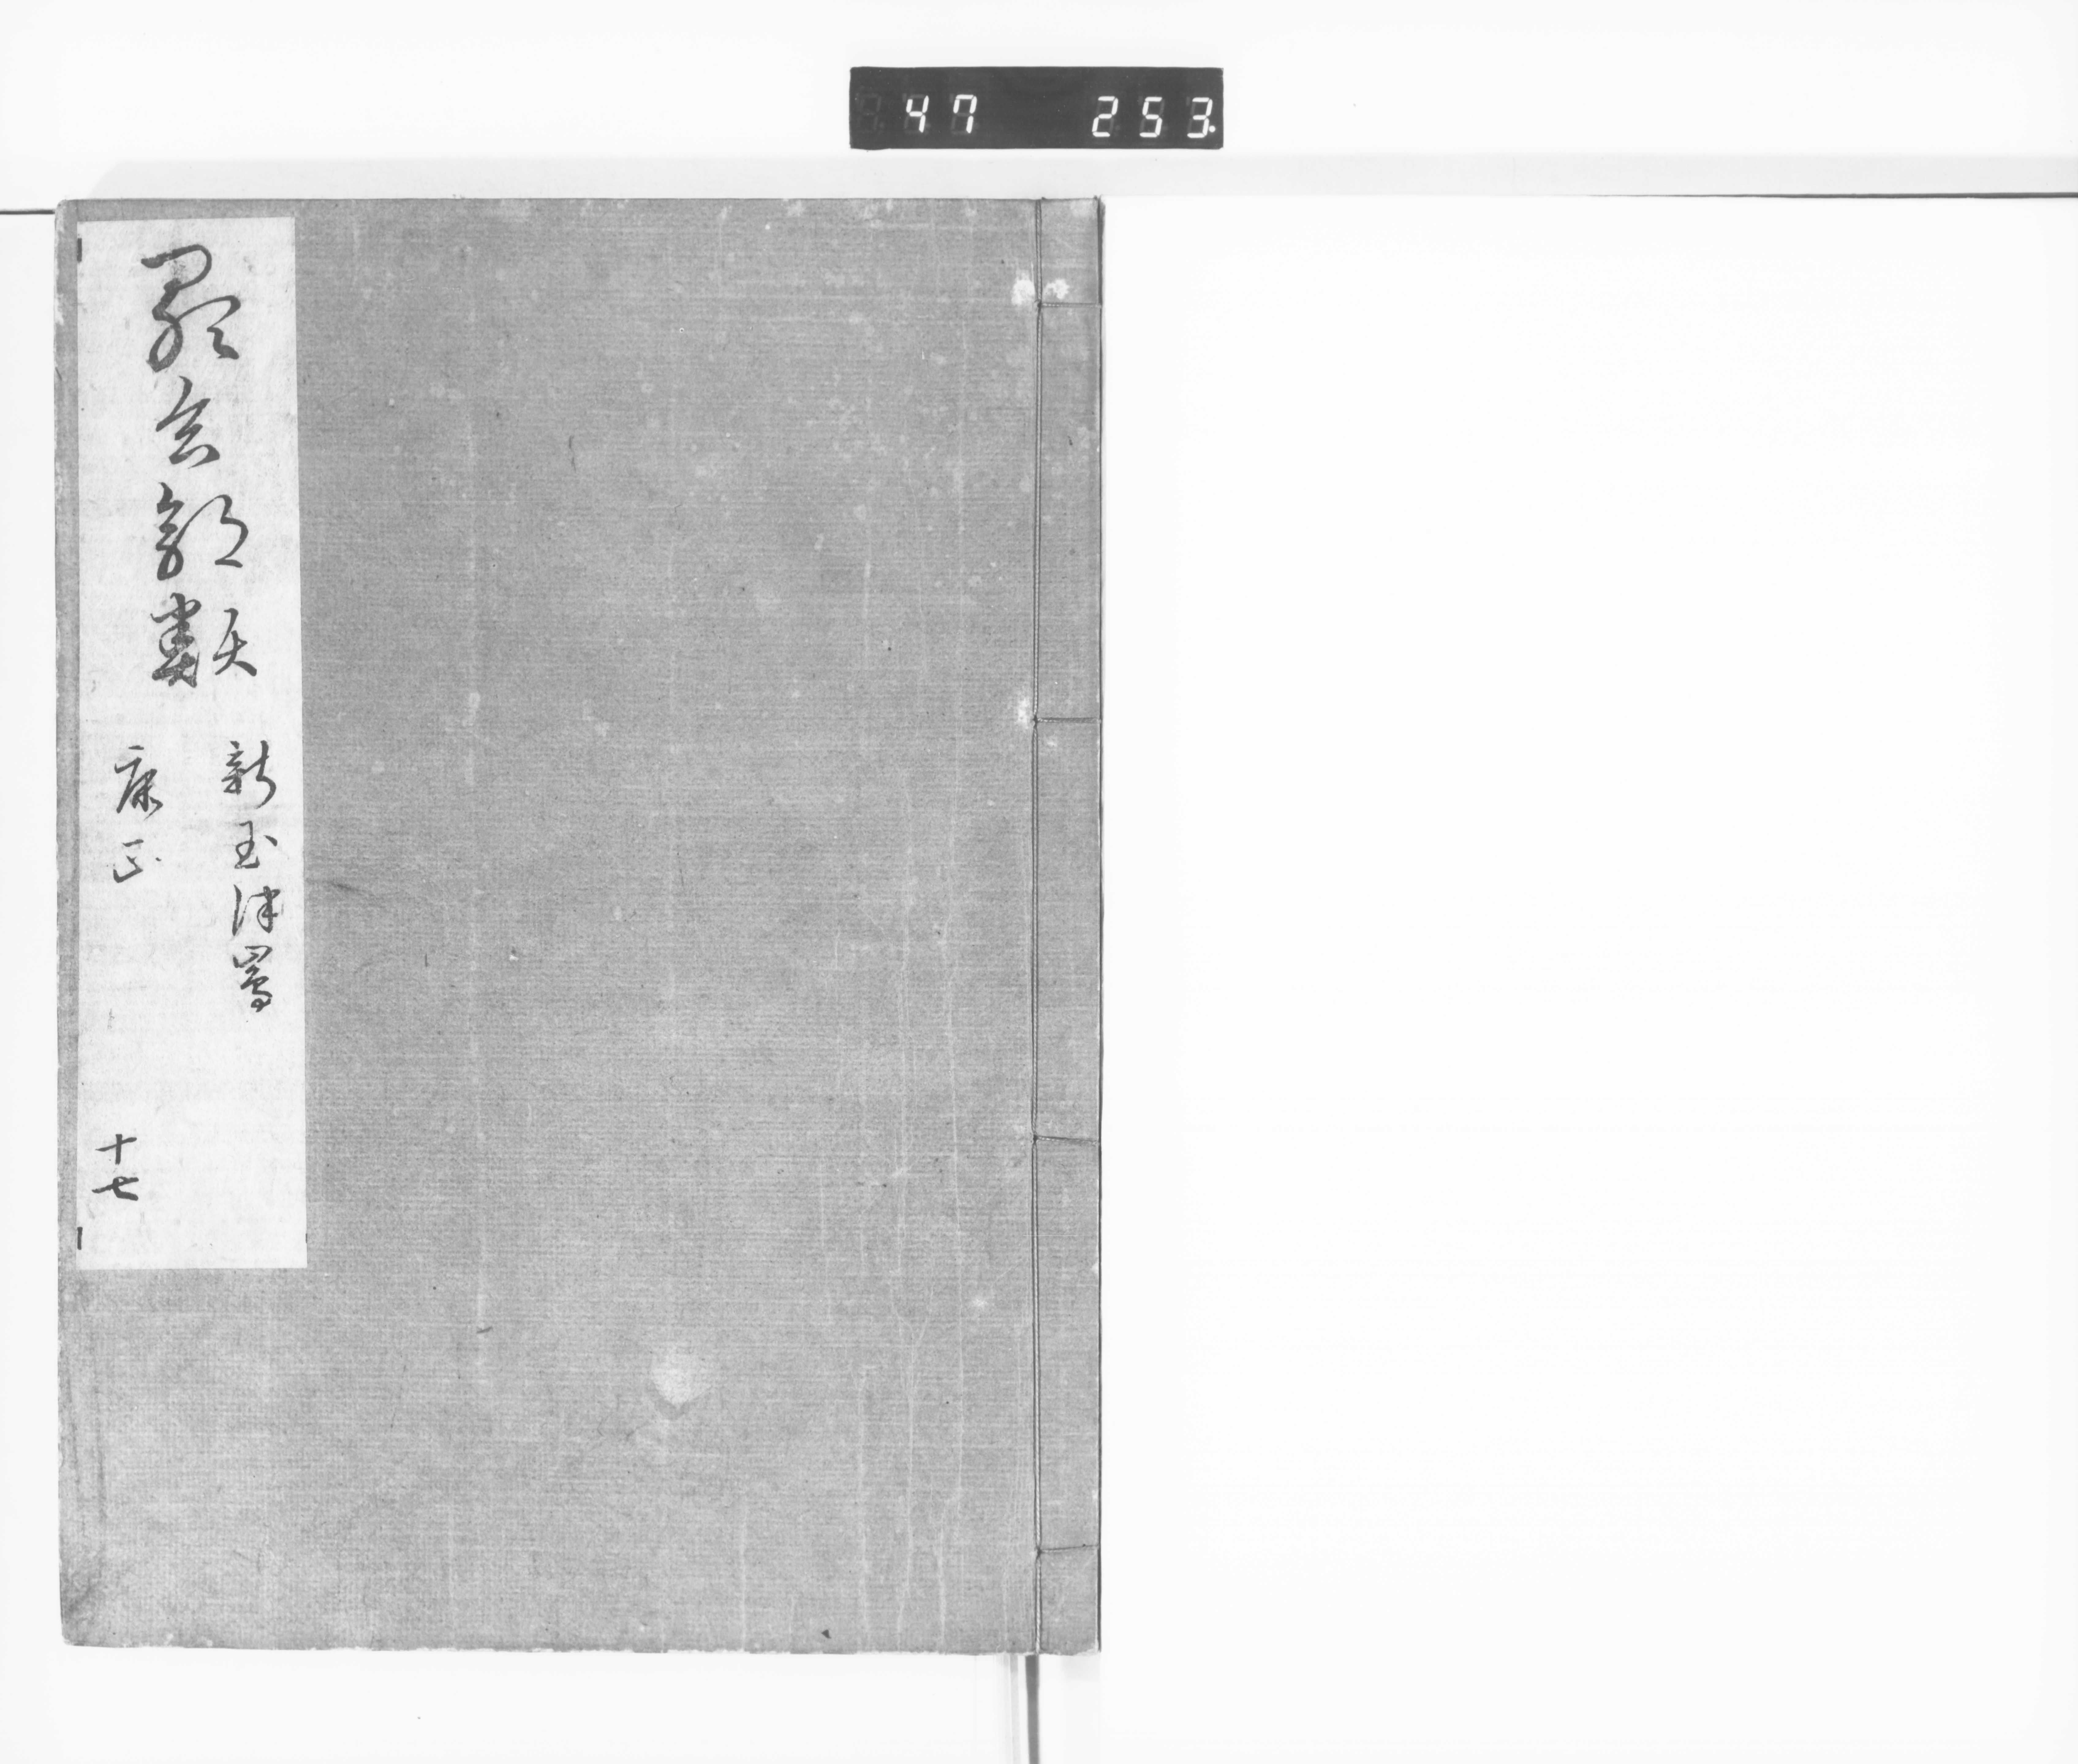 47 253
歌合部類
新玉津嶌
康正
十七